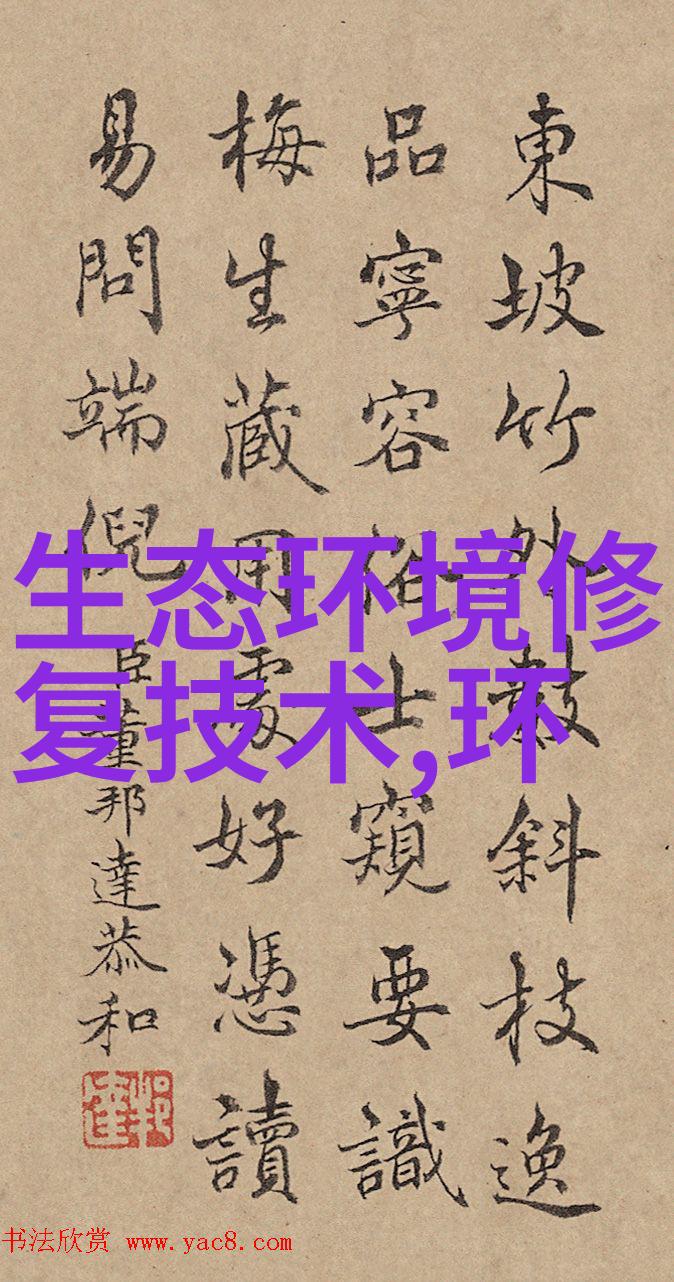 東坡竹外斜枝逸
品寧容俗士窺要識
梅生藏用處好憑讀
易問端倪
臣董邦達恭和
邦達
生态环境修
复技术,环
书法欣赏 www.yac8.com